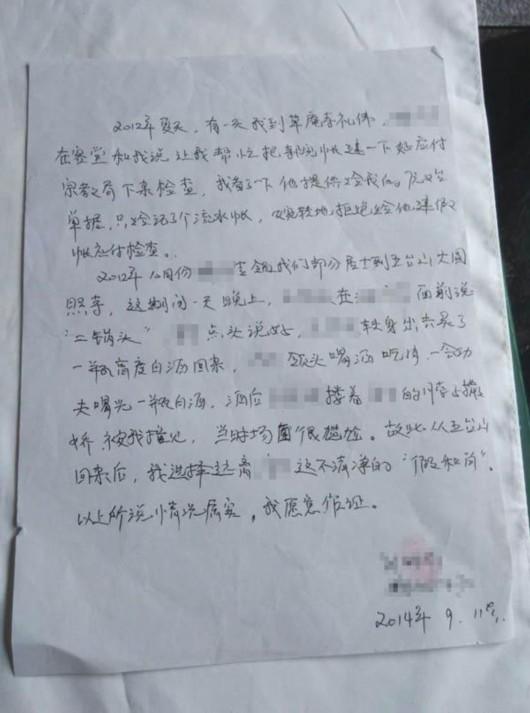 2012年夏天，有一天我到草庵寺礼佛，
在客堂和我说让我帮忙把寺院帐建一下好应付
宗教局下来检查，我看了一下他提供给我的
单据，只给记了个流水帐，婉转地拒绝给他建假
帐应付检查。
2012年 月份 查领我们部分居士到五台山大圆
照寺，这期间一天晚上， 在 面前说
"二锅头" 点头说好， 转身出去买了
一瓶高度白酒回来， 领头喝酒吃 一会功
夫喝光一瓶白酒，酒后 搂着 的 撒
娇被我撞见，当时场面很尴尬。故此从五台山
回来后，我选择远离 这不清净的"假和尚"。
以上所说情况属实，我愿意作证。
2014年 9. 11